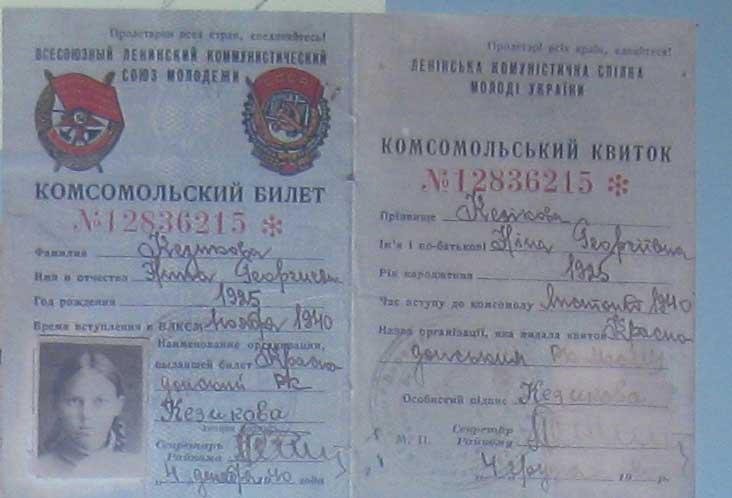 Пролетарии всех стран, соединяйтесь!
ВСЕСОЮЗНЫЙ ЛЕНИНСКИЙ КОММУНИСТИЧЕСКИЙ
СОЮЗ МОЛОДЕЖИ
КОМСОМОЛЬСКИЙ БИЛЕТ
№12836215 *
Фамилия Кезикова
Имя и отчество Нина Георгиевн
Год рождения 1925
Время вступления в ВЛКСМ Ноября 1940
Наименование организации,
выдавшей билет Красно
донский РК
Кезикова
Секретарь
Райкома
„4 декабря 40 года
Пролетарі всіх країн, єднайтеся!
ЛЕНІНСЬКА КОМУНІСТИЧНА СПІЛКА
МОЛОДІ УКРАЇНИ
КОМСОМОЛЬСЬКИЙ КВИТОК
№12836215 *
Прізвище Кезікова
Ім'я і по-батькові Ніна Георгіївна
Рік народження 1925
Час вступу до комсомолу Листопад 1940
Назва організації, яка видала квиток Красно
донським
Особистий підпис Кезикова
М. П. Секретар
Райкому
„4 груд р.